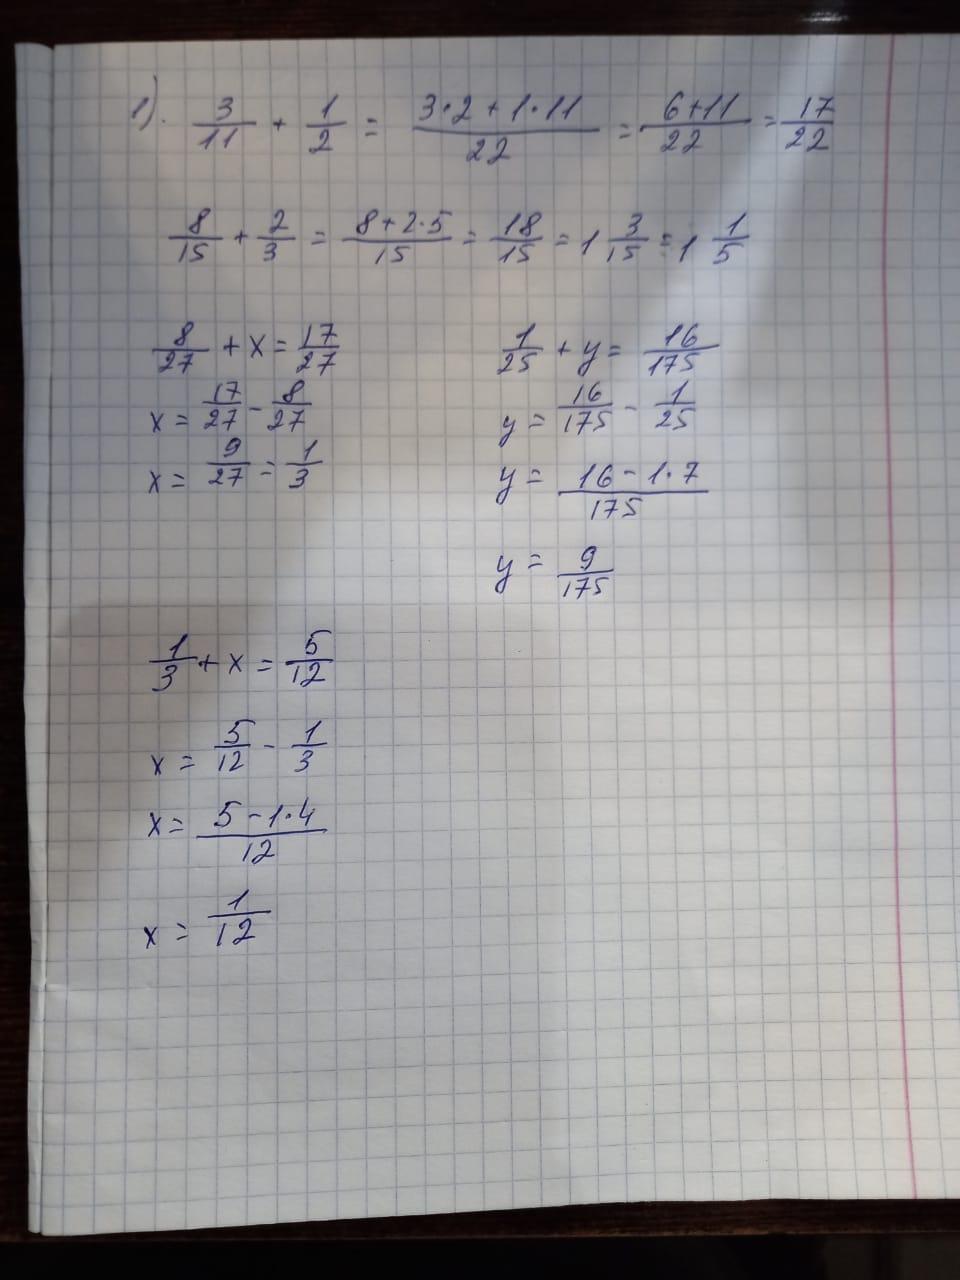 1). 3/11 + 1/2 = (3·2+1·11)/22 = (6+11)/22 = 17/22
8/15 + 2/3 = (8+2·5)/15 = 18/15 = 1 3/15 = 1 1/5
8/27 + x = 17/27
x = 17/27 - 8/27
x = 9/27 = 1/3
1/25 + y = 16/175
y = 16/175 - 1/25
y = (16-1·7)/175
y = 9/175
1/3 + x = 5/12
x = 5/12 - 1/3
x = (5-1·4)/12
x = 1/12